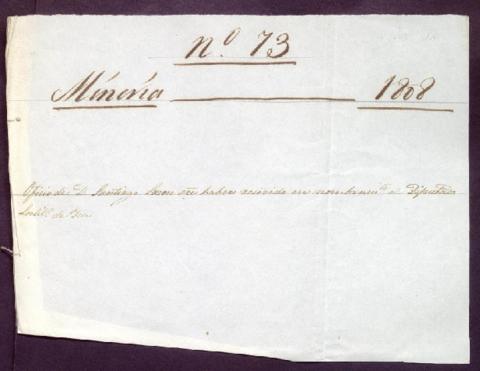 Nº 73
Minería 1808
Oficio de D. Santiago sre haber recivido su nombramtº de Diputado
de